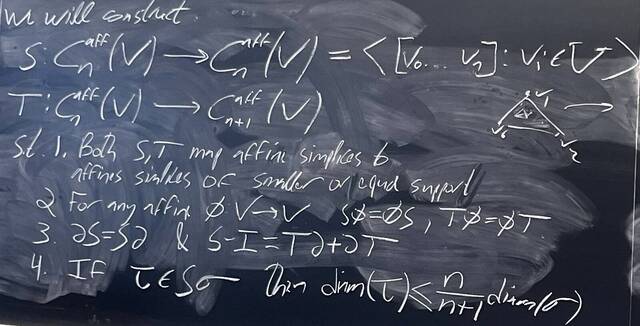 We will construct.
S: C_n^{aff}(V) → C_n^{aff}(V) = ⟨[v_0... v_n]: v_i ∈ V⟩
T: C_n^{aff}(V) → C_{n+1}^{aff}(V)
v_1
v_0
v_2
s.t. 1. Both S,T map affine simplices to
affines simplices of smaller or equal support
2 For any affine ∅ V→V S∅=∅S, T∅=∅T.
3. ∂S=S∂ & S-I=T∂+∂T
4. If τ∈Sσ Then diam(τ) ≤ \frac{n}{n+1} diam(σ)